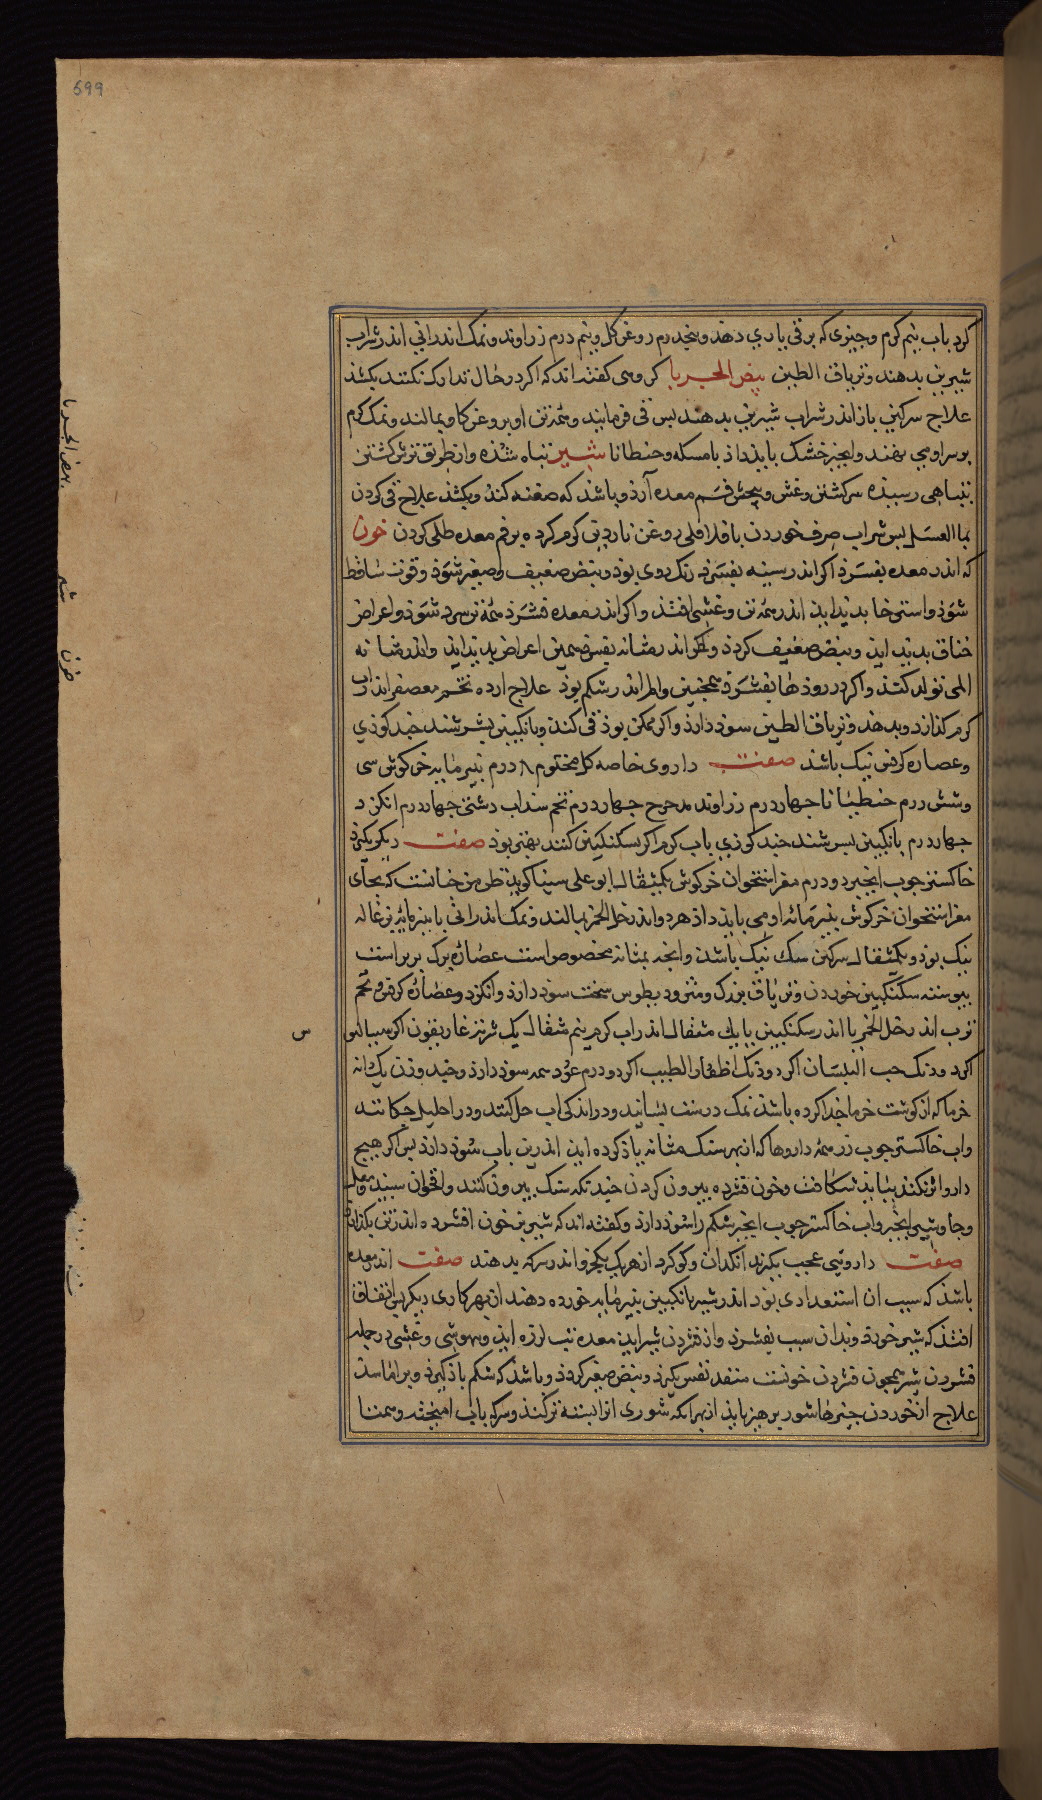 699
کرد باب نیم کرم و چیزی که بر قی یاری دهد و پنجدرم روغن کل و نیم درم زراوند و نمک اندرانی اندر شراب
شیرین بدهند و تریاق الطین بیض الحربا کروهی کفته‌اند که اکر در حال تدارک نکنند بکشد
علاج سرکین باز اندر شراب شیرین بدهند بس قی فرمایند و همه تن او بروغن کاو بمالند و نمک کرم
بر سر او می نهند و انجیر خشک باید داذ با مسکه و جنطیانا شیر تباه شذه و از طریق ترش کشتن
بتباهی رسیذه سرکشتن و غشی و پیچش فم معده آرذ و باشد که هیضه کند و بکشد علاج قی کردن
بما العسل بس شراب صرف خوردن با فلافلی روغن ناردین کرم کرده بر فم معده طلی کردن خون
که اندر معده بفسرذ اکر اندر سینه بفسرذ رنک روی بوذ و نبض ضعیف و صغیر شوذ و قوت ساقط
شوذ و استرخا بدید ایذ اندر همه تن و غشی افتذ و اکر اندر معده فشرذ همه تن سرد شوذ و اعراض
خناق بدید ایذ و نبض ضعیف کردذ و اکر اندر مثانه بفسرذ همین اعراض بدید ایذ و اندر مثانه
المی تولد کند و اکر در روذها بفسرذ همچنین و الم اندر شکم بوذ علاج ارده تخم معصفر اندر اب
کرم کذارند و بدهند و تریاق الطین سوذ دارذ و اکر ممکن بوذ قی کند و بانکبین بسرشند چند کوزی
و عصاره کرفس نیک باشد صفت داروی خاصه کل مختوم ۸ درم بنیرمایه خرکوش سی
و شش درم جنطیانا چهار درم زراوند مدحرج چهار درم تخم سداب دشتی چهار درم انکزد
چهار درم بانکبین بسرشند چند کوزی باب کرم اکر بسکنکبین کنند بهتر بوذ صفت دیکر بکیرذ
خاکستر چوب انجیر دو درم مغز استخوان خرکوش یکمثقال ابو علی سینا کویذ ظن من چنانست که بجای
مغز استخوان خرکوش بنیرمایه او می بایذ داذ هر دو اندر خل الخمر بمالند و نمک اندرانی با بنیرمایه بزغاله
نیک بوذ و یکمثقال سرکین سک نیک باشد و انجه بمثانه مخصوص است عصاره برک بر براست
بیوسته سکنکبین خوردن و تریاق بزرک و مثرودیطوس سخت سوذ دارذ و انکزد و عصاره کرفس و تخم
ترب اندر خل الخمر یا اندر سکنکبین یا یک مثقال اندر اب کرم نیم مثقال یک شربت غاریقون اکر سیسالیوس
اکر دو دنک حب البلسان اکر دو دنک اظفار الطیب اکر دو درم عود همه سوذ دارذ و چند وزن یک دانه
خرما که از کوشت خرما جدا کرده باشند نمک درست بستانند و در اندکی اب حل کنند و در احلیل چکانند
و اب خاکستر چوب رز همه داروها که از بهر سنک مثانه یاذ کرده‌اید اندرین باب سوذ دارذ بس اکر هیچ
دارو اثر نکند ببایذ شکافت و خون فشرده بیرون کردن چندانکه سنک بیرون کنند و اقحوان سبید
و جاوشیر و انجیر و اب خاکستر چوب انجیر شکم را سوذ دارذ و کفته‌اند که شیر بز خون افشرده اندر تن بکذارد
صفت داروئی عجب بکیرند انکدان و کوکرد از هر یک یکجزو اندر سرکه بدهند صفت اندر معده
باشد که سبب ان استعدادی بوذ اندر شیر بانکبین بنیرمایه خورده دهند از بهر کاری دیکر بس اتفاق
افتذ که شیر خورد و بدان سبب بفسرذ و از فشردن شیر اندر معده تب لرزه ایذ و بیهوشی و غشی در جمله
فشردن شیر همچون فشردن خونست منفذ نفس بکیرذ و نبض صغیر کردذ و باشد که شکم باز کیرذ و بیاماسد
علاج از خوردن چیزها شور برهیز بایذ از بهر انکه شوری انرا بسته‌تر کند و سرکه باب امیخته
بیض الحربا
شیر
خون
س